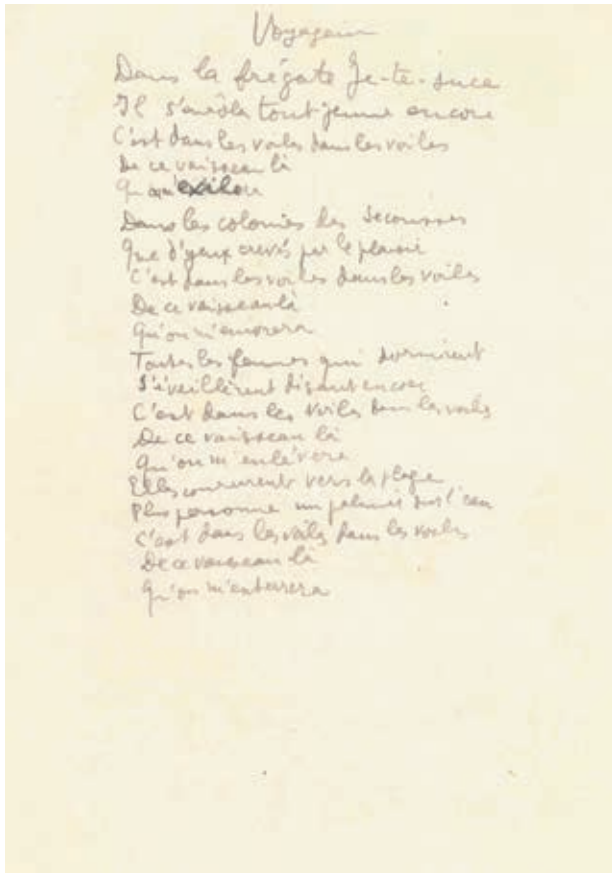 Voyageur
Dans la frégate Je-te-suce
Il s'en alla tout jeune encore
C'est dans les voiles dans les voiles
De ce vaisseau là
Qu'on exilera
Dans les colonies des secousses
Que d'yeux crevés par le plaisir
C'est dans les voiles dans les voiles
De ce vaisseau là
Qu'on m'
Toutes les femmes qui dormirent
S'éveillèrent disant encore
C'est dans les voiles dans les voiles
De ce vaisseau là
Qu'on m'enlèvera
Elles coururent vers la plage
Plus personne un palmier sur l'eau
C'est dans les voiles dans les voiles
De ce vaisseau là
Qu'on m'enterrera